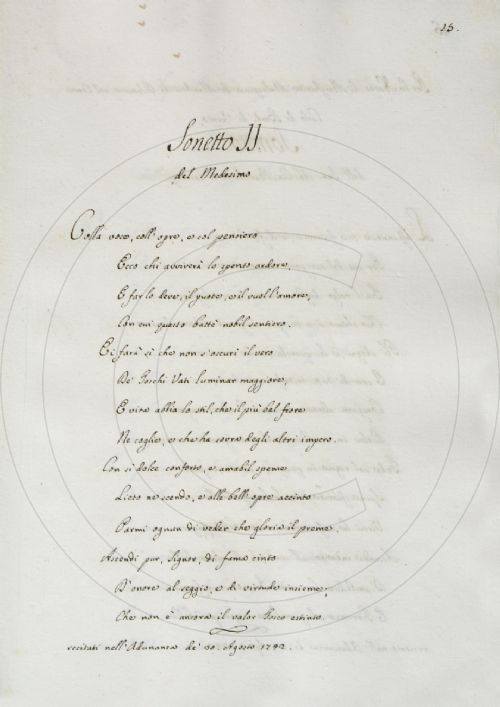 15.
Sonetto II
del Medesimo
Colla voce, coll' opre, e col pensiero
Ecco chi avviverà lo spento ardore,
E far lo deve, il puote, e il vuol l'amore,
Con cui questo battè nobil sentiero.
Ei farà sì che non s'oscuri il vero
De' Toschi Vati luminar maggiore,
E vita abbia lo stil, che il più bel fiore
Ne coglie, e che ha sovra degli altri impero.
Con sì dolce conforto, e amabil speme
Lieto ne scendo, e alle bell' opre accinto
Parmi ognun di veder che gloria il preme.
Ascendi pur, Signor, di fama cinto
D'onore al seggio, e di virtude insieme,
Che non è ancora il valor Tosco estinto.
recitati nell' Adunanza de' 30. Agosto